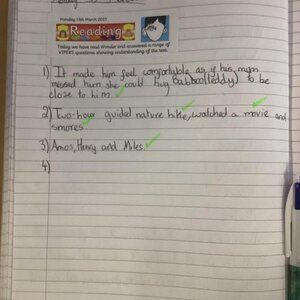 Monday 13th March 2023
Reading
Today we have read Wonder and answered a range of
VIPERS questions showing understanding of the text.
1) It made him feel comfortable as if his mum
missed him she could hug Baboo (teddy) to be
close to him.
2) Two-hour guided nature hike, watched a movie and
smores
3) Amos, Henry and Miles.
4)